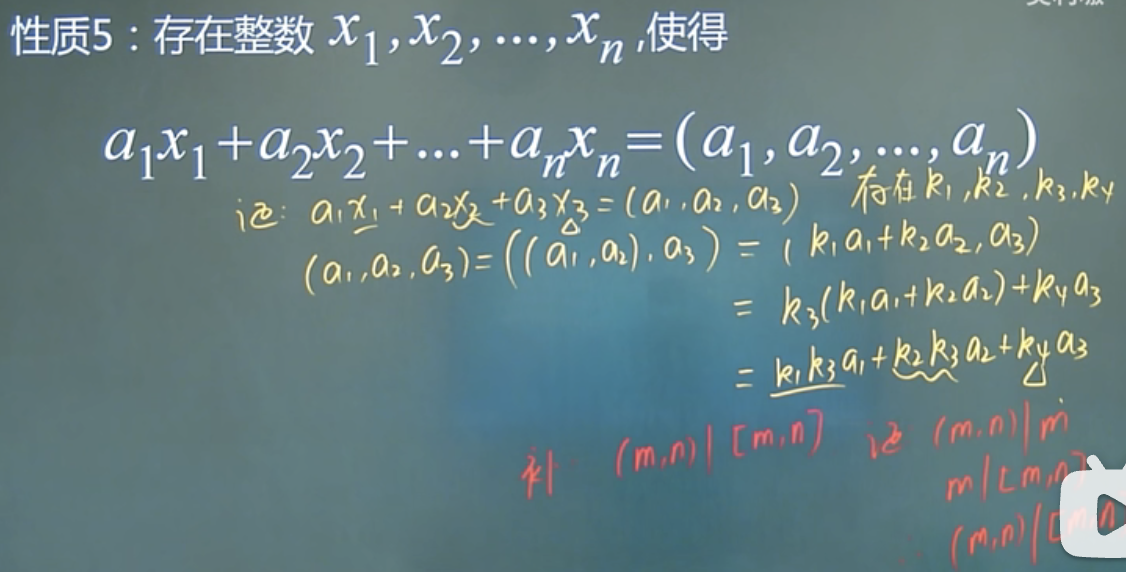 性质5：存在整数 x₁,x₂,...,xₙ,使得
a₁x₁+a₂x₂+...+aₙxₙ=(a₁,a₂,...,aₙ)
证: a₁x₁+a₂x₂+a₃x₃=(a₁,a₂,a₃) 存在k₁,k₂,k₃,k₄
(a₁,a₂,a₃)=((a₁,a₂),a₃)=(k₁a₁+k₂a₂,a₃)
=k₃(k₁a₁+k₂a₂)+k₄a₃
=k₁k₃a₁+k₂k₃a₂+k₄a₃
补 (m,n)|[m,n] 证 (m,n)|m
m|[m,n]
(m,n)|[m,n